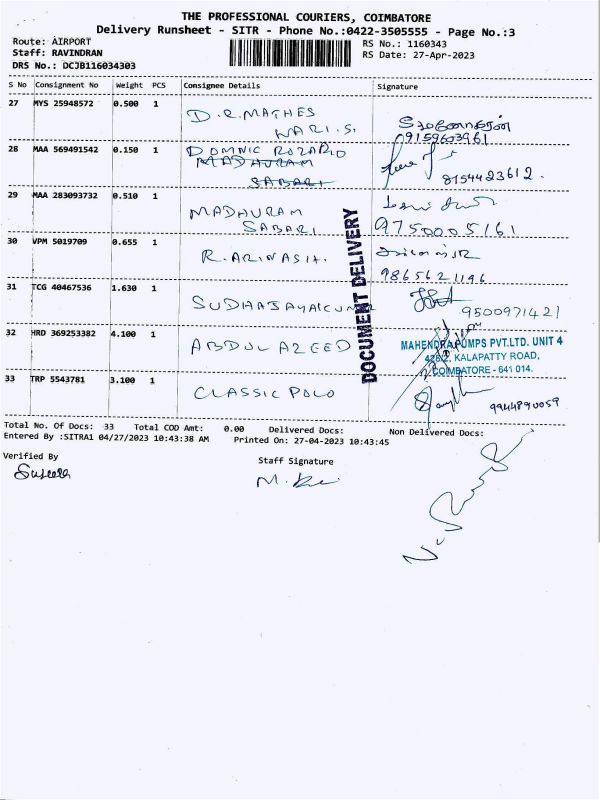 THE PROFESSIONAL COURIERS, COIMBATORE
Delivery Runsheet - SITR - Phone No.:0422-3505555 - Page No.:3
Route: AIRPORT RS No.: 1160343
Staff: RAVINDRAN RS Date: 27-Apr-2023
DRS No.: DCJB116034303
S No Consignment No Weight PCS Consignee Details Signature
27 MYS 25948572 0.500 1 D.R.MATHES
WARI.S.
9159603961
28 MAA 569491542 0.150 1 DOMNIC ROZARIO
MADHURAM
SABARI
8154423612.
29 MAA 283093732 0.510 1 MADHURAM
SABARI
9750005161
30 VPM 5019709 0.655 1 R. ARINASH.
9865621196
31 TCG 40467536 1.630 1 SUDHAJAYAKUMAR
9500971421
32 HRD 369253382 4.100 1 ABDUL AZEED
MAHENDRA PUMPS PVT.LTD. UNIT 4
428/2, KALAPATTY ROAD,
COIMBATORE - 641 014.
33 TRP 5543781 3.100 1 CLASSIC POLO
9944890059
DOCUMENT DELIVERY
Total No. Of Docs: 33 Total COD Amt: 0.00 Delivered Docs: Non Delivered Docs:
Entered By :SITRA1 04/27/2023 10:43:38 AM Printed On: 27-04-2023 10:43:45
Verified By Staff Signature